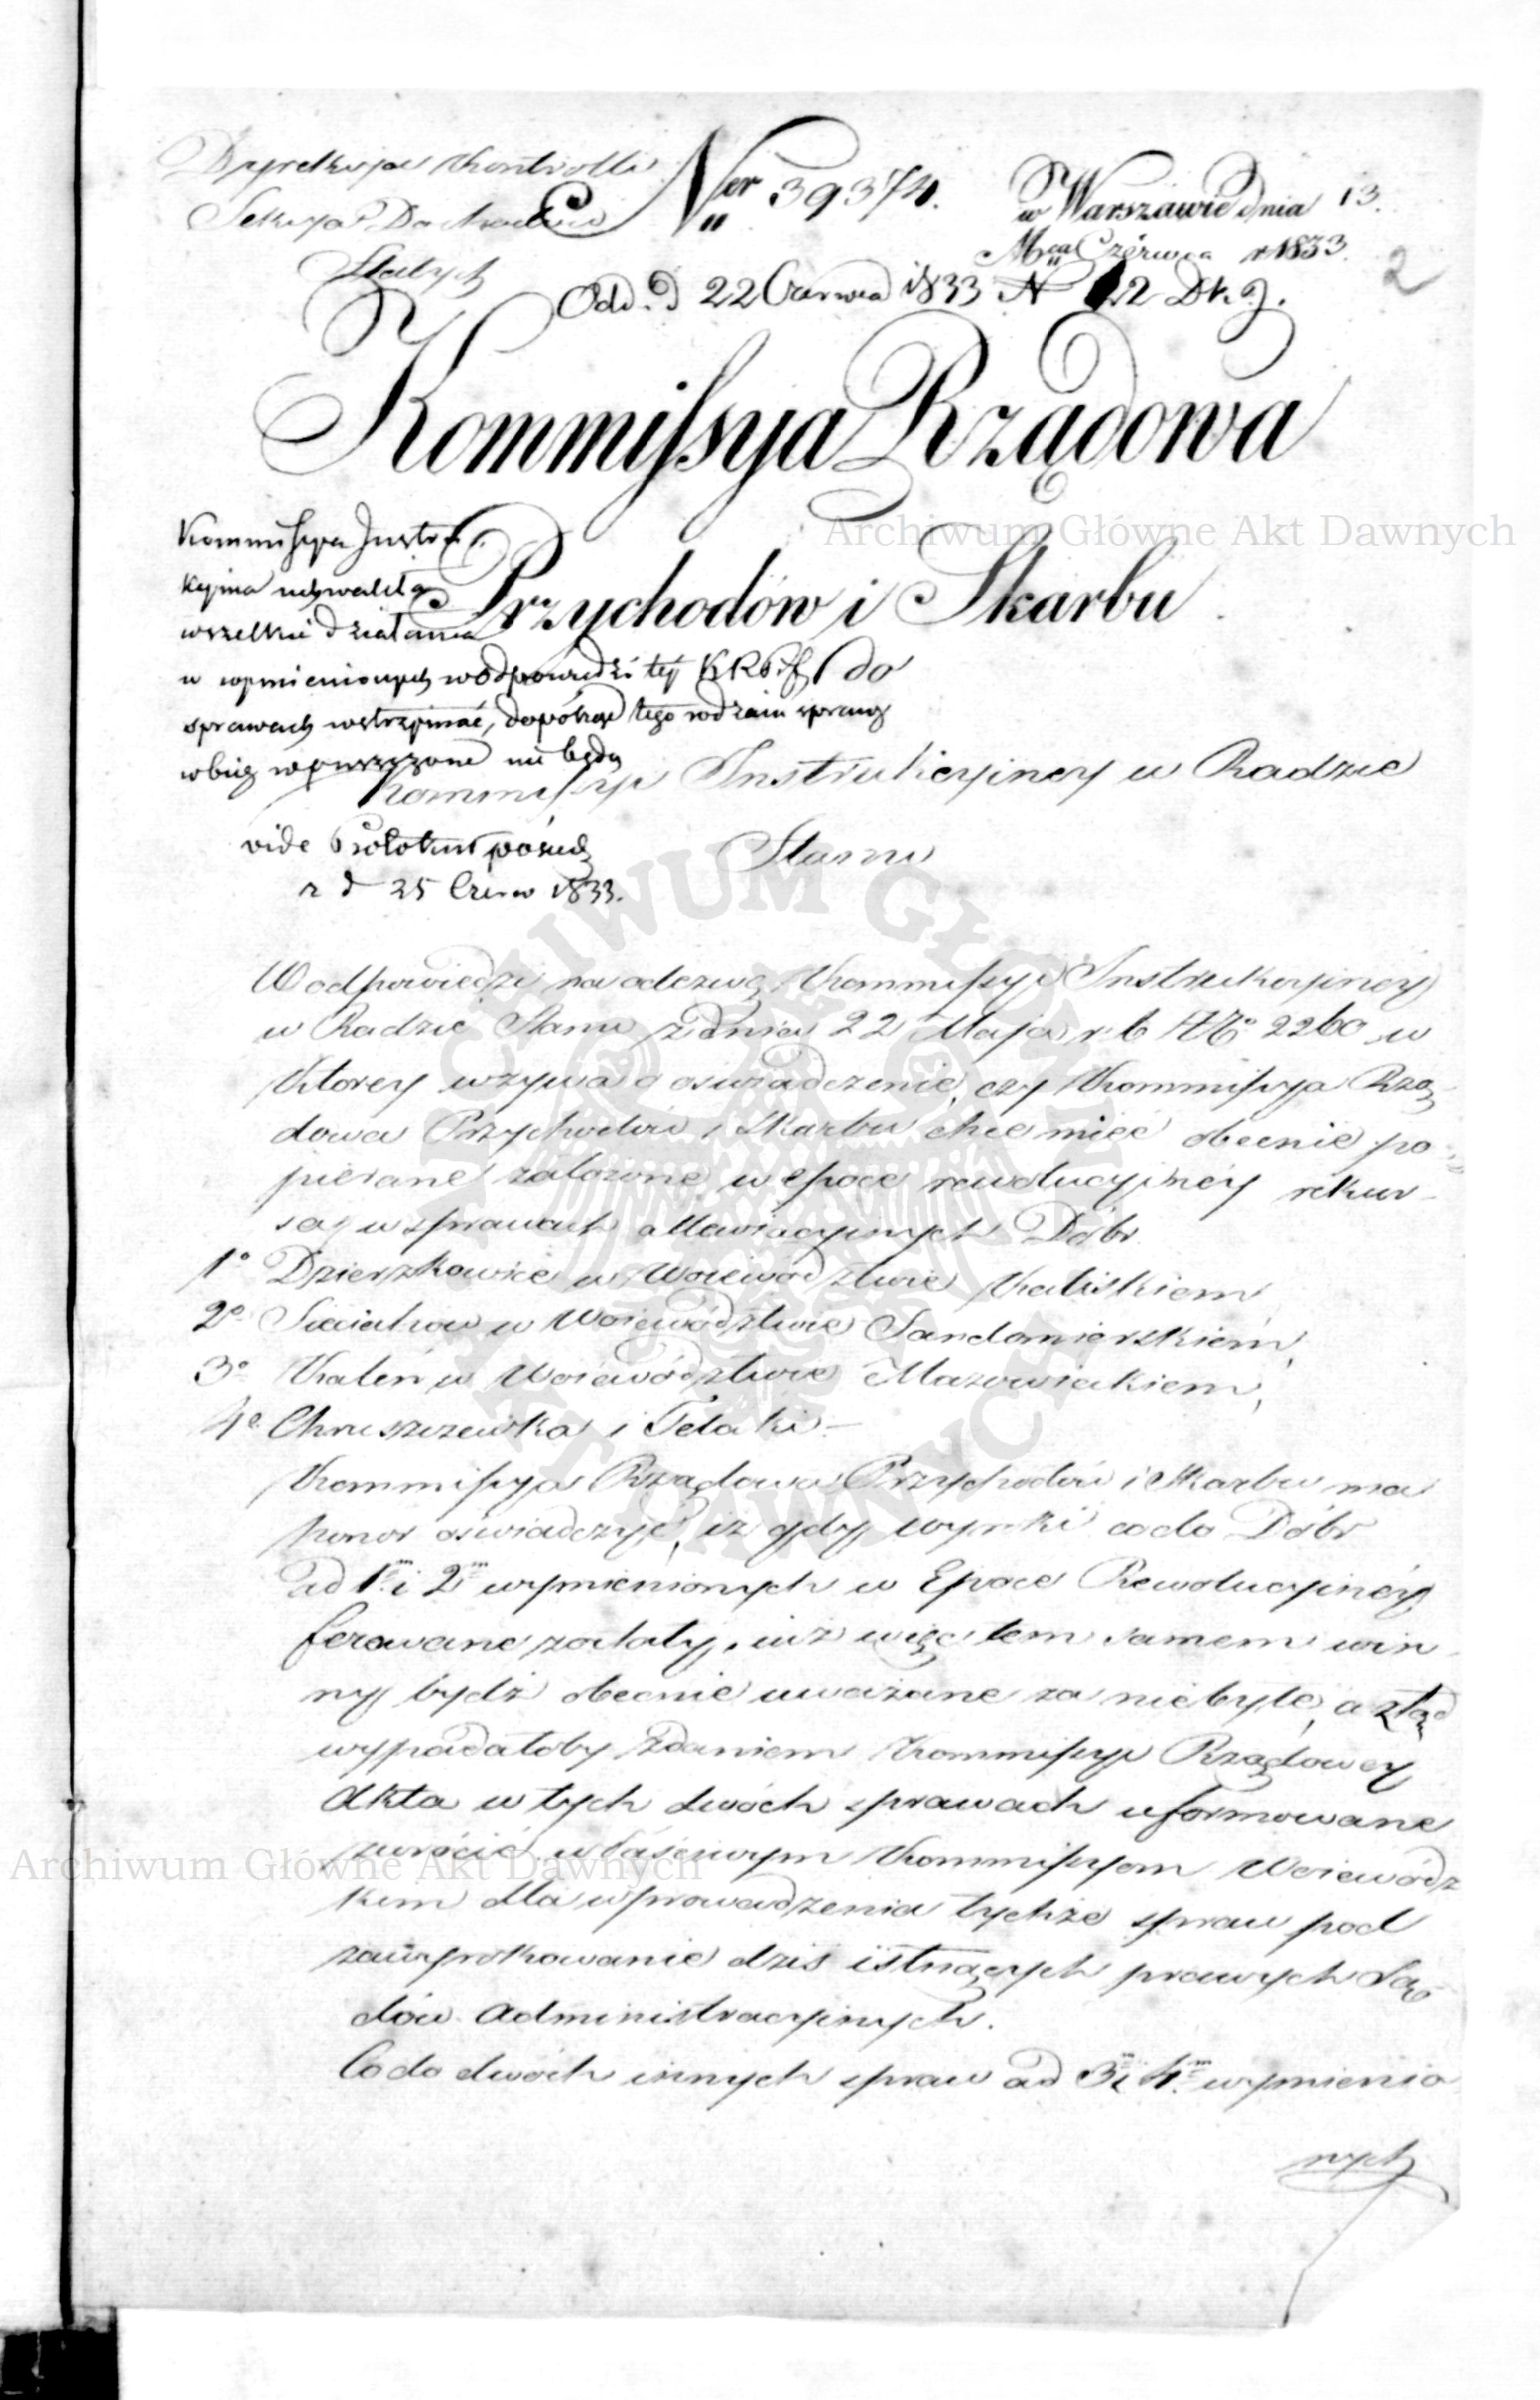 Dyrekcya Kontrolli
Sekcya Dochodów
Stałych
Ner 39374.
w Warszawie dnia 13.
Mca Czerwca r 1833.
2
Odd. d 22 Czerwca 1833 N 22 Dk g.
Kommissya Rządowa
Przychodów i Skarbu
Kommissya Instru
kcyina uchwaliła
wszelkie działania
w wymienionych w odpowiedzi tej KRPiS
sprawach wstrzymać, dopókąd tego rodzaiu sprawy
w bieg wpuszczone nie będą
vide Protokuł posiedz
z d 25 Czerw 1833.
do
Kommissyi Instrukcyiney w Radzie
Stanu
W odpowiedzi na odezwę Kommissyi Instrukcyiney
w Radzie Stanu z dnia 22 Maja r. b No 2260 w
ktorey wzywa o oswiadczenie, czy Kommissya Rzą
dowa Przychodów i Skarbu chce mieć obecnie po=
pierane założone w epoce rewolucyjnéy rekur-
sa w sprawach allewiacyinych Dóbr
1o Dzierzkowice w Woiewództwie Kaliskiem
2o Sieciechow w Woiewództwie Sandomierskiém,
3o Kaleń w Woiewództwie Mazowieckiem,
4o Chruszczewka i Telaki -
Kommissya Rządowa Przychodów i Skarbu ma
honor oświadczyć, iż gdy wyroki co do Dóbr
ad 1m i 2m wymienionych w Epoce Rewolucyinéy
ferowane zostały, iuż więc tem samem win
ny bydź obecnie uważane za niebyłe, a ztąd
wypadałoby zdaniem Kommissyi Rządowey
Akta w tych dwóch sprawach uformowane
zwrócić właściwym Kommissyom Woiewódz
kim dla wprowadzenia tychże spraw pod
zawyrokowanie dziś istnących prawych Są
dów Administracyinych.
Co do dwóch innych spraw ad 3m i 4m wymienio
nych
Archiwum Główne Akt Dawnych
Archiwum Główne Akt Dawnych
ARCHIWUM GŁÓWNE AKT DAWNYCH